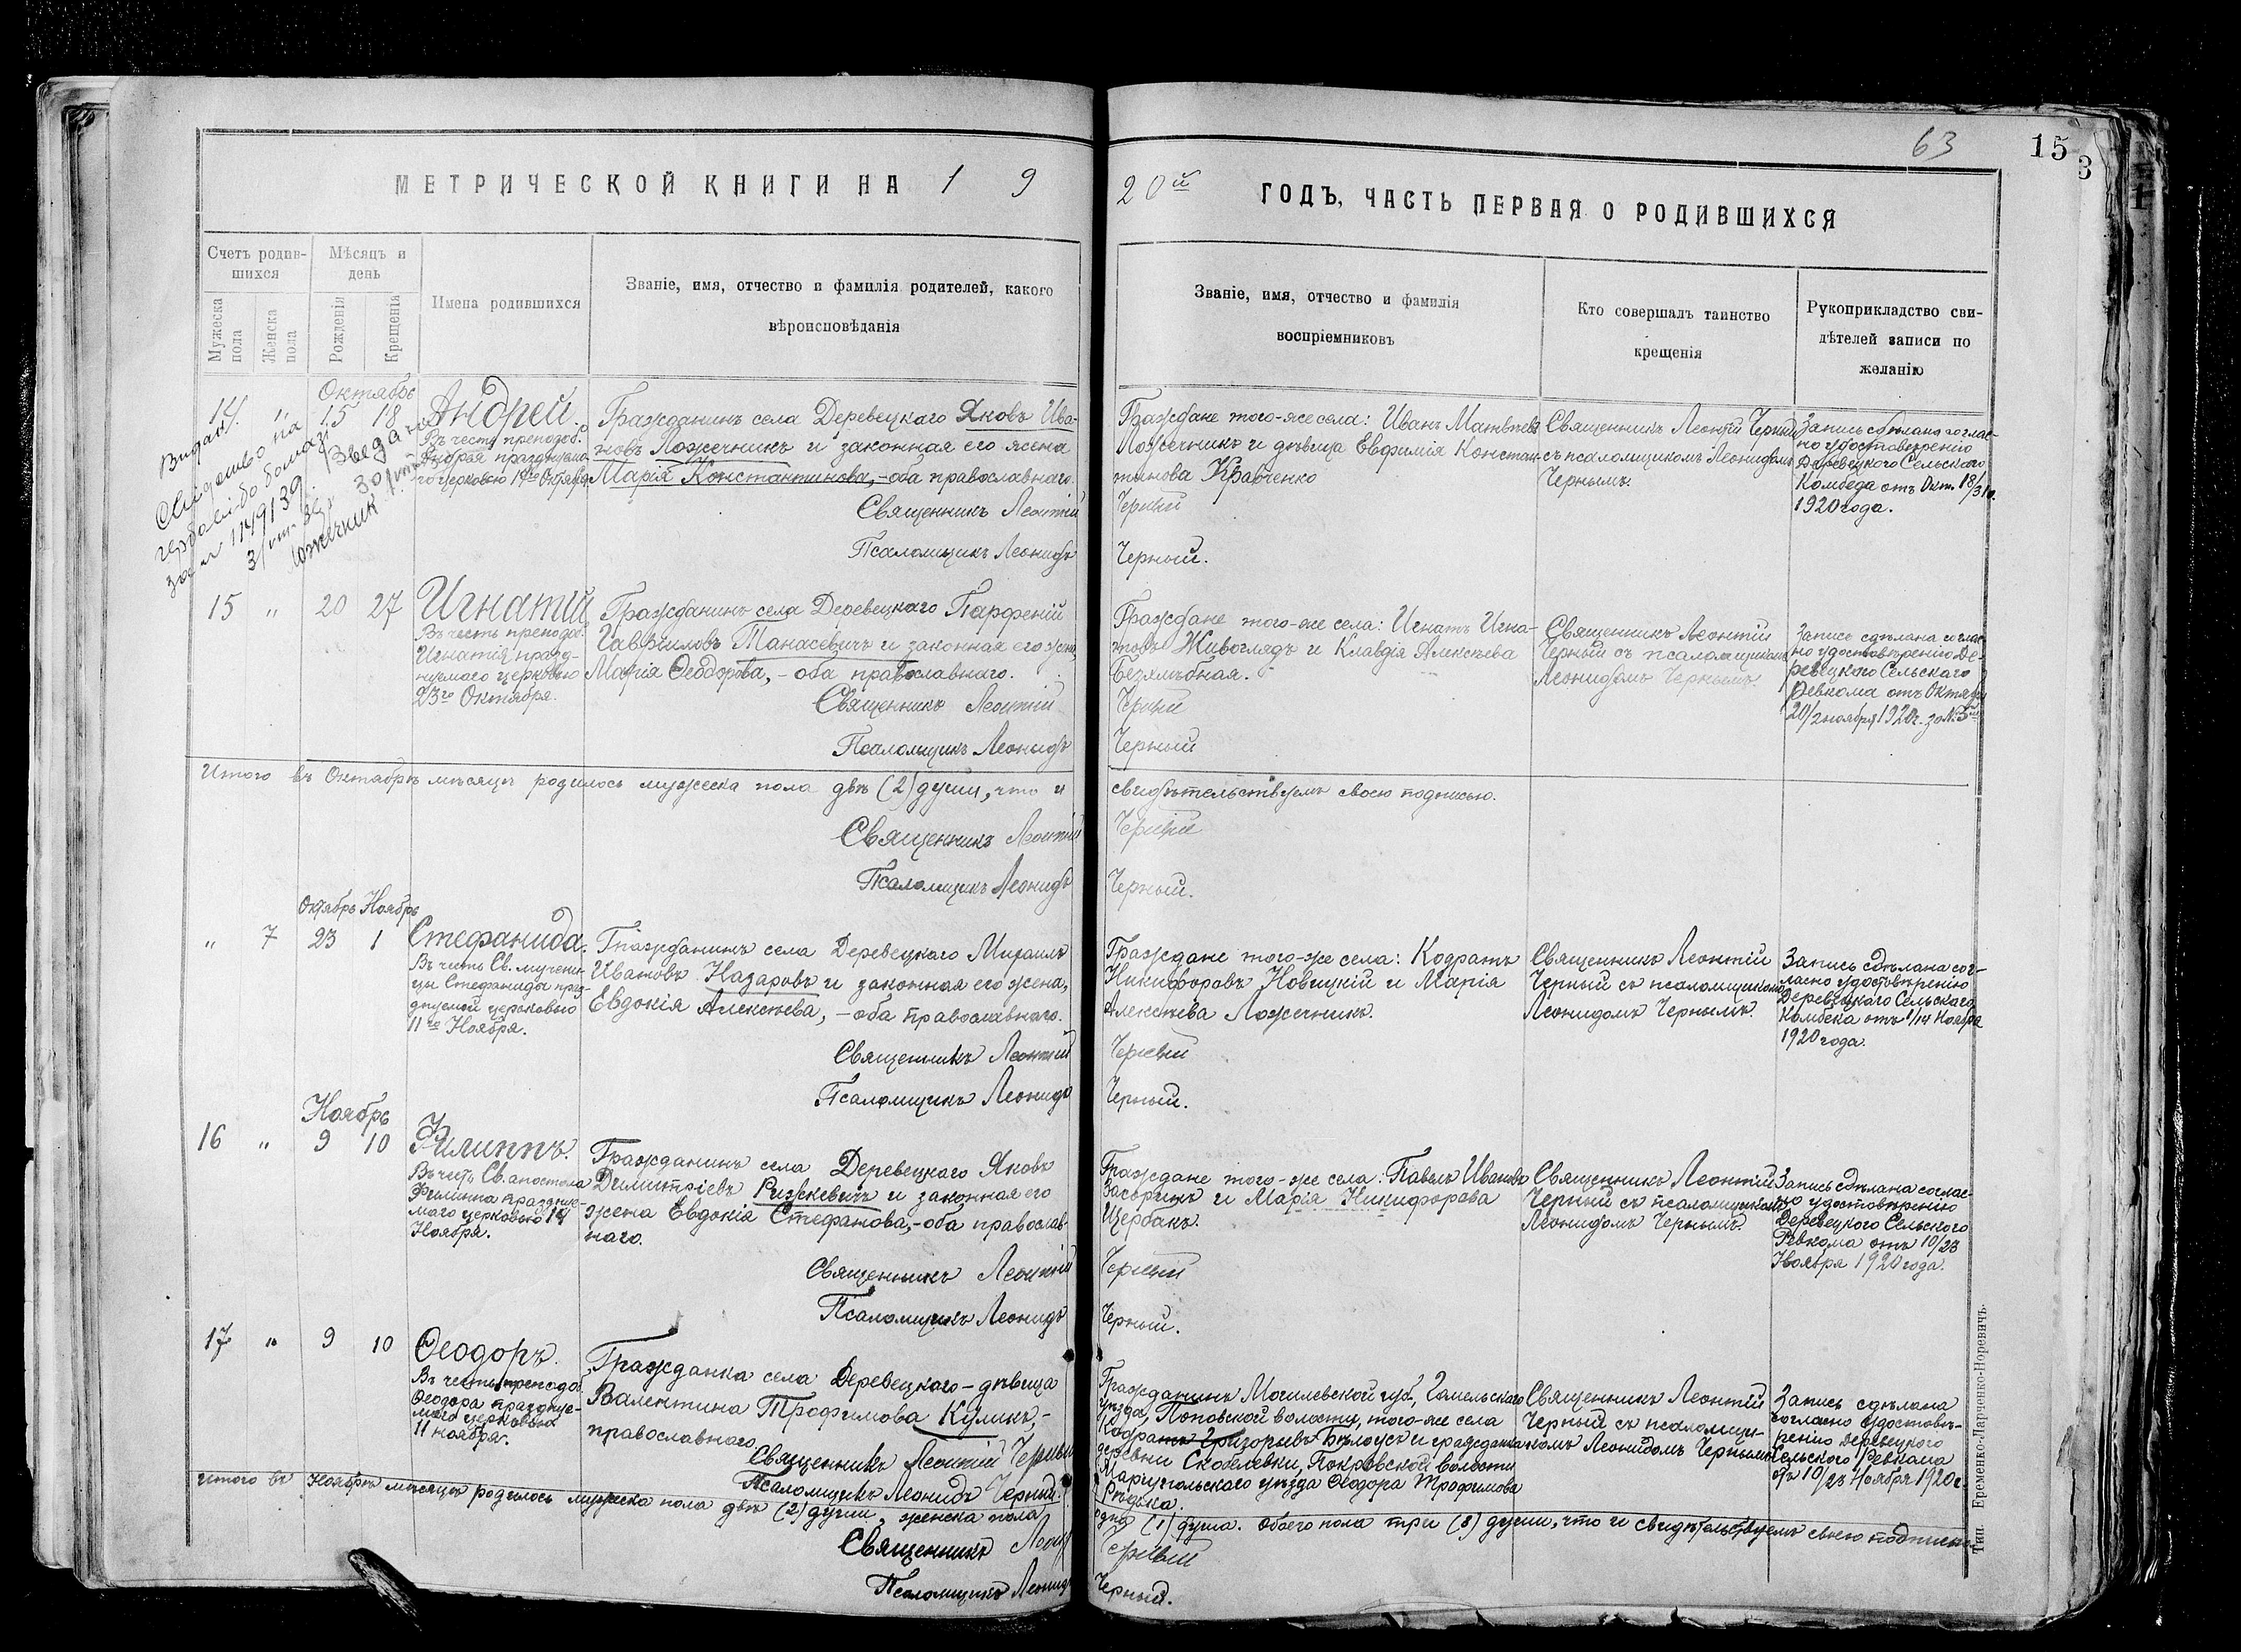 63
15
3
МЕТРИЧЕСКОЙ КНИГИ НА 19
20й ГОДЪ, ЧАСТЬ ПЕРВАЯ О РОДИВШИХСЯ
Счетъ родив-
шихся
Мужеска
пола
Женска
пола
Мѣсяцъ и
день
Рожденія
Крещенія
Имена родившихся
Званіе, имя, отчество и фамилія родителей, какого
вѣроисповѣданія
Званіе, имя, отчество и фамилія
воспріемниковъ
Кто совершалъ таинство
крещенія
Рукоприкладство сви-
дѣтелей записи по
желанію
Октябрь
14 " 15 18
Андрей.
Въ честь преподоб.
Андрея празднуема-
го церковью 17го Октября
Гражданинъ села Деревецкаго Яковъ Ива-
новъ Ложечникъ и законная его жена
Марія Константинова, – оба православнаго.
Священникъ Леонтій
Псаломщикъ Леонидъ
Граждане того-же села: Иванъ Матвѣевъ
Ложечникъ и дѣвица Евфимія Констан-
тинова Кравченко
Черный
Черный.
Священникъ Леонтій Черный
съ псаломщикомъ Леонидомъ
Чернымъ.
Запись сдѣлана соглас-
но удостовѣренію
Деревецкаго Сельскаго
Комбеда отъ Окт. 18/31
1920 года.
15 " 20 27
Игнатій
Въ честь преподоб.
Игнатія празд-
нуемаго церковью
23го Октября.
Гражданинъ села Деревецкаго Парфеній
Гавріиловъ Танасевичъ и законная его жена
Марія Ѳеодорова, – оба православнаго.
Священникъ Леонтій
Псаломщикъ Леонидъ
Граждане того-же села: Игнатъ Игна-
товъ Живоглядъ и Клавдія Алексѣева
Безялыбная.
Черный
Черный
Священникъ Леонтій
Черный съ псаломщикомъ
Леонидомъ Чернымъ.
Запись сдѣлана соглас-
но удостовѣренію Де-
ревецкаго Сельскаго
Ревкома отъ Октября
20/2 ноября 1920 г. за №
Итого въ Октябрѣ мѣсяцѣ родилось мужеска пола двѣ (2) души, что и
свидѣтельствуемъ своею подписью.
Священникъ Леонтій
Черный
Псаломщикъ Леонидъ
Черный.
Октябрь Ноябрь
" 7 23 1
Стефанида.
Въ честь Св. мучени-
цы Стефаниды праз-
днуемой церковью
11го Ноября.
Гражданинъ села Деревецкаго Михаилъ
Ивановъ Назаровъ и законная его жена,
Евдокія Алексѣева, – оба православнаго.
Священникъ Леонтій
Псаломщикъ Леонидъ
Граждане того-же села: Кодратъ
Никифоровъ Новицкій и Марія
Алексѣева Ложечникъ.
Черный
Черный.
Священникъ Леонтій
Черный съ псаломщикомъ
Леонидомъ Чернымъ.
Запись сдѣлана сог-
ласно удостовѣренію
Деревецкаго Сельскаго
Комбека отъ 1/14 Ноября
1920 года.
Ноябрь
16 " 9 10
Филиппъ.
Въ честь Св. апостола
Филиппа праздне-
маго церковью 14
Ноября.
Гражданинъ села Деревецкаго Яковъ
Димитріевъ Рижкевичъ и законная его
жена Евдокія Стефанова, – оба православ-
наго.
Священникъ Леонтій
Псаломщикъ Леонидъ
Граждане того-же села: Павелъ Ивановъ
Засоринъ и Марія Никифорова
Щербакъ.
Черный
Черный.
Священникъ Леонтій
Черный съ псаломщикомъ
Леонидомъ Чернымъ.
Запись сдѣлана соглас-
но удостовѣренію
Деревецкаго Сельскаго
Ревкома отъ 10/23
Ноября 1920 года.
17 " 9 10
Ѳеодоръ.
Въ честь преподоб.
Ѳеодора празднуе-
маго церковью
11 ноября.
Гражданка села Деревецкаго – дѣвица
Валентина Трофимова Куликъ, –
православнаго
Священникъ Леонтій Черный
Псаломщикъ Леонидъ Черный.
Гражданинъ Могилевской губ., Гомельскаго
уѣзда, Поповской волости, того-же села
Кодратъ Григорьевъ Бѣлоусъ и гражданка
деревни Скобелевки, Покровской волости
Маріупольскаго уѣзда Ѳеодора Трофимова
Рѣдька.
Священникъ Леонтій
Черный съ псаломщи-
комъ Леонидомъ Чернымъ
Запись сдѣлана
согласно удостовѣ-
ренію Деревецкаго
Сельскаго Ревкома
отъ 10/23 Ноября 1920 г.
Итого въ Ноябрѣ мѣсяцѣ родилось мужеска пола двѣ (2) души, женска пола
одна (1) душа. Обоего пола три (3) души, что и свидѣтельствуемъ своею подписью
Священникъ Леонтій
Черный
Псаломщикъ Леонидъ
Черный.
Тип. Еременко-Ларченко-Норевичъ.